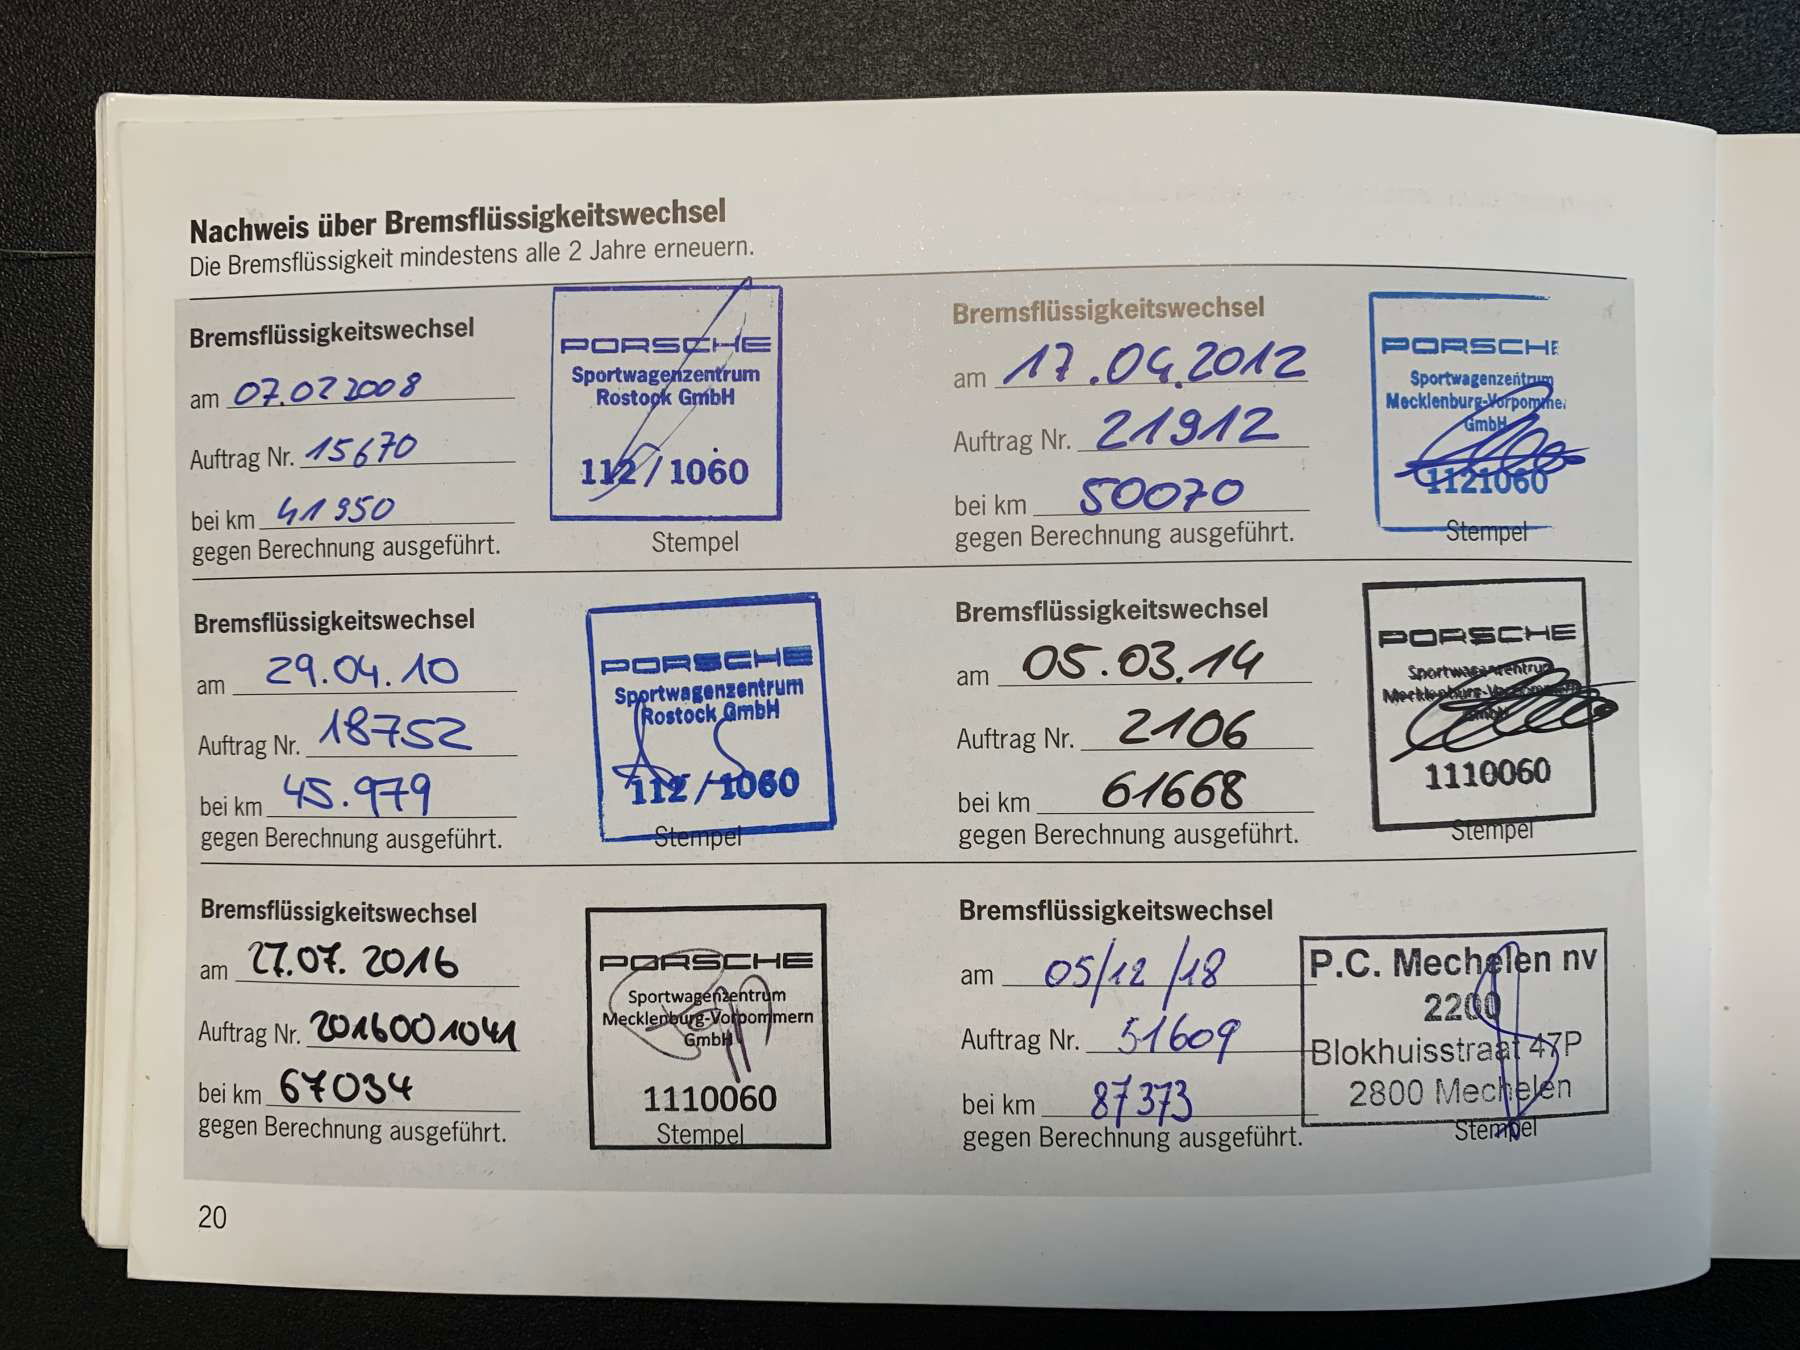 Nachweis über Bremsflüssigkeitswechsel
Die Bremsflüssigkeit mindestens alle 2 Jahre erneuern.
Bremsflüssigkeitswechsel
am 07.02 2008
Auftrag Nr. 15670
bei km 41 950
gegen Berechnung ausgeführt.
PORSCHE
Sportwagenzentrum
Rostock GmbH
112 / 1060
Stempel
Bremsflüssigkeitswechsel
am 17.04.2012
Auftrag Nr. 21912
bei km 50070
gegen Berechnung ausgeführt.
PORSCHE
Sportwagenzentrum
Mecklenburg-Vorpommer
GmbH
1121060
Stempel
Bremsflüssigkeitswechsel
am 29.04.10
Auftrag Nr. 18752
bei km 45.979
gegen Berechnung ausgeführt.
PORSCHE
Sportwagenzentrum
Rostock GmbH
112 / 1060
Stempel
Bremsflüssigkeitswechsel
am 05.03.14
Auftrag Nr. 2106
bei km 61668
gegen Berechnung ausgeführt.
PORSCHE
Sportwagenzentrum
Mecklenburg-Vorpommern
GmbH
1110060
Stempel
Bremsflüssigkeitswechsel
am 27.07.2016
Auftrag Nr. 2016001041
bei km 67034
gegen Berechnung ausgeführt.
PORSCHE
Sportwagenzentrum
Mecklenburg-Vorpommern
GmbH
1110060
Stempel
Bremsflüssigkeitswechsel
am 05/12/18
Auftrag Nr. 51609
bei km 87373
gegen Berechnung ausgeführt.
P.C. Mechelen nv
2200
Blokhuisstraat 47P
2800 Mechelen
Stempel
20